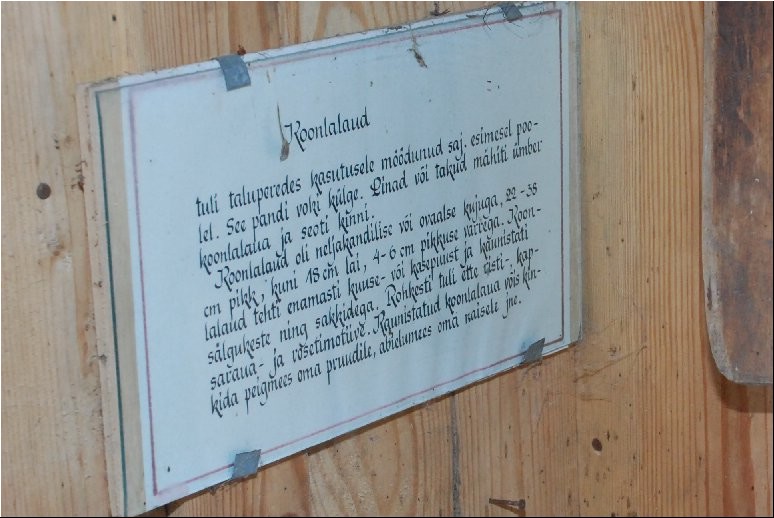 Koonlalaud
tuli taluperedes kasutusele möödunud saj. esimesel poo-
lel. See pandi voki külge. Linad või takud mähiti ümber
koonlalaua ja seoti kinni.
Koonlalaud oli neljakandilise või ovaalse kujuga, 22-58
cm pikk, kuni 18 cm lai, 4-6 cm pikkuse varrega. Koon-
lalaud tehti enamasti kuuse- või kasepuust ja kaunistati
sälgukeste ning sakkidega. Rohkesti tuli ette risti-, kap-
saraua- ja rosetimotiive. Kaunistatud koonlalaua võis kin-
kida peigmees oma pruudile, abielumees oma naisele jne.